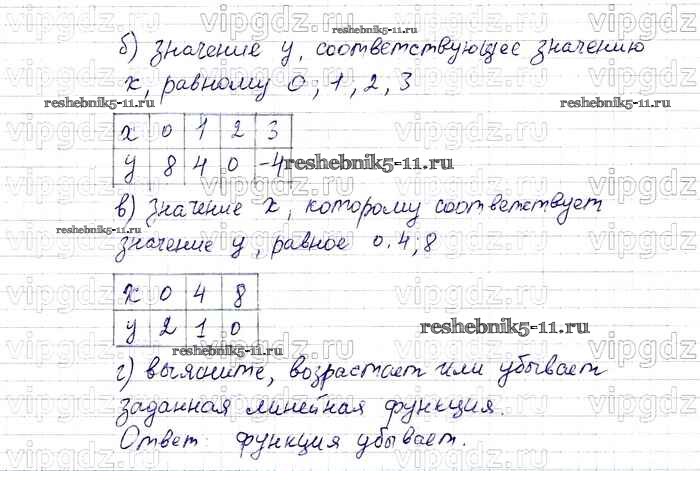 б) значение y, соответствующее значению
x, равному 0; 1, 2, 3
x 0 1 2 3
y 8 4 0 -4
в) значение x, которому соответствует
значение y, равное 0.4;8
x 0 4 8
y 2 1 0
г) выясните, возрастает или убывает
заданная линейная функция.
Ответ: функция убывает.
reshebnik5-11.ru
reshebnik5-11.ru
reshebnik5-11.ru
reshebnik5-11.ru
reshebnik5-11.ru
reshebnik5-11.ru
reshebnik5-11.ru
reshebnik5-11.ru
vipgdz.ru